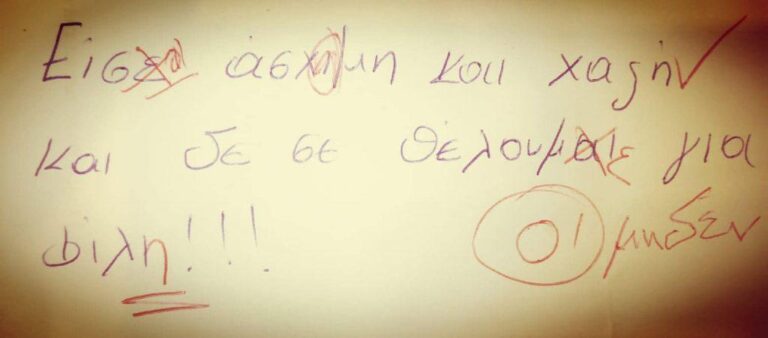 Εισαι άσχημη και χαζή
και δε σε θέλουμε για
φίλη!!! 0 μηδεν